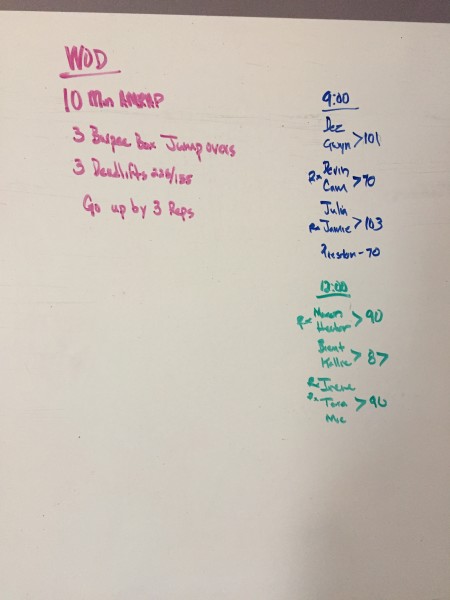 WOD
10 Min AMRAP
3 Burpee Box Jump overs
3 Deadlifts /155
Go up by 3 Reps
9:00
Dez
Gwyn >101
Rx Devin
Cam >70
Julia
Rx Jamie >103
Preston - 70
12:00
Rx
Hector >90
Brent
Kollie > 87
Rx Irene
Rx Tona >90
Mic